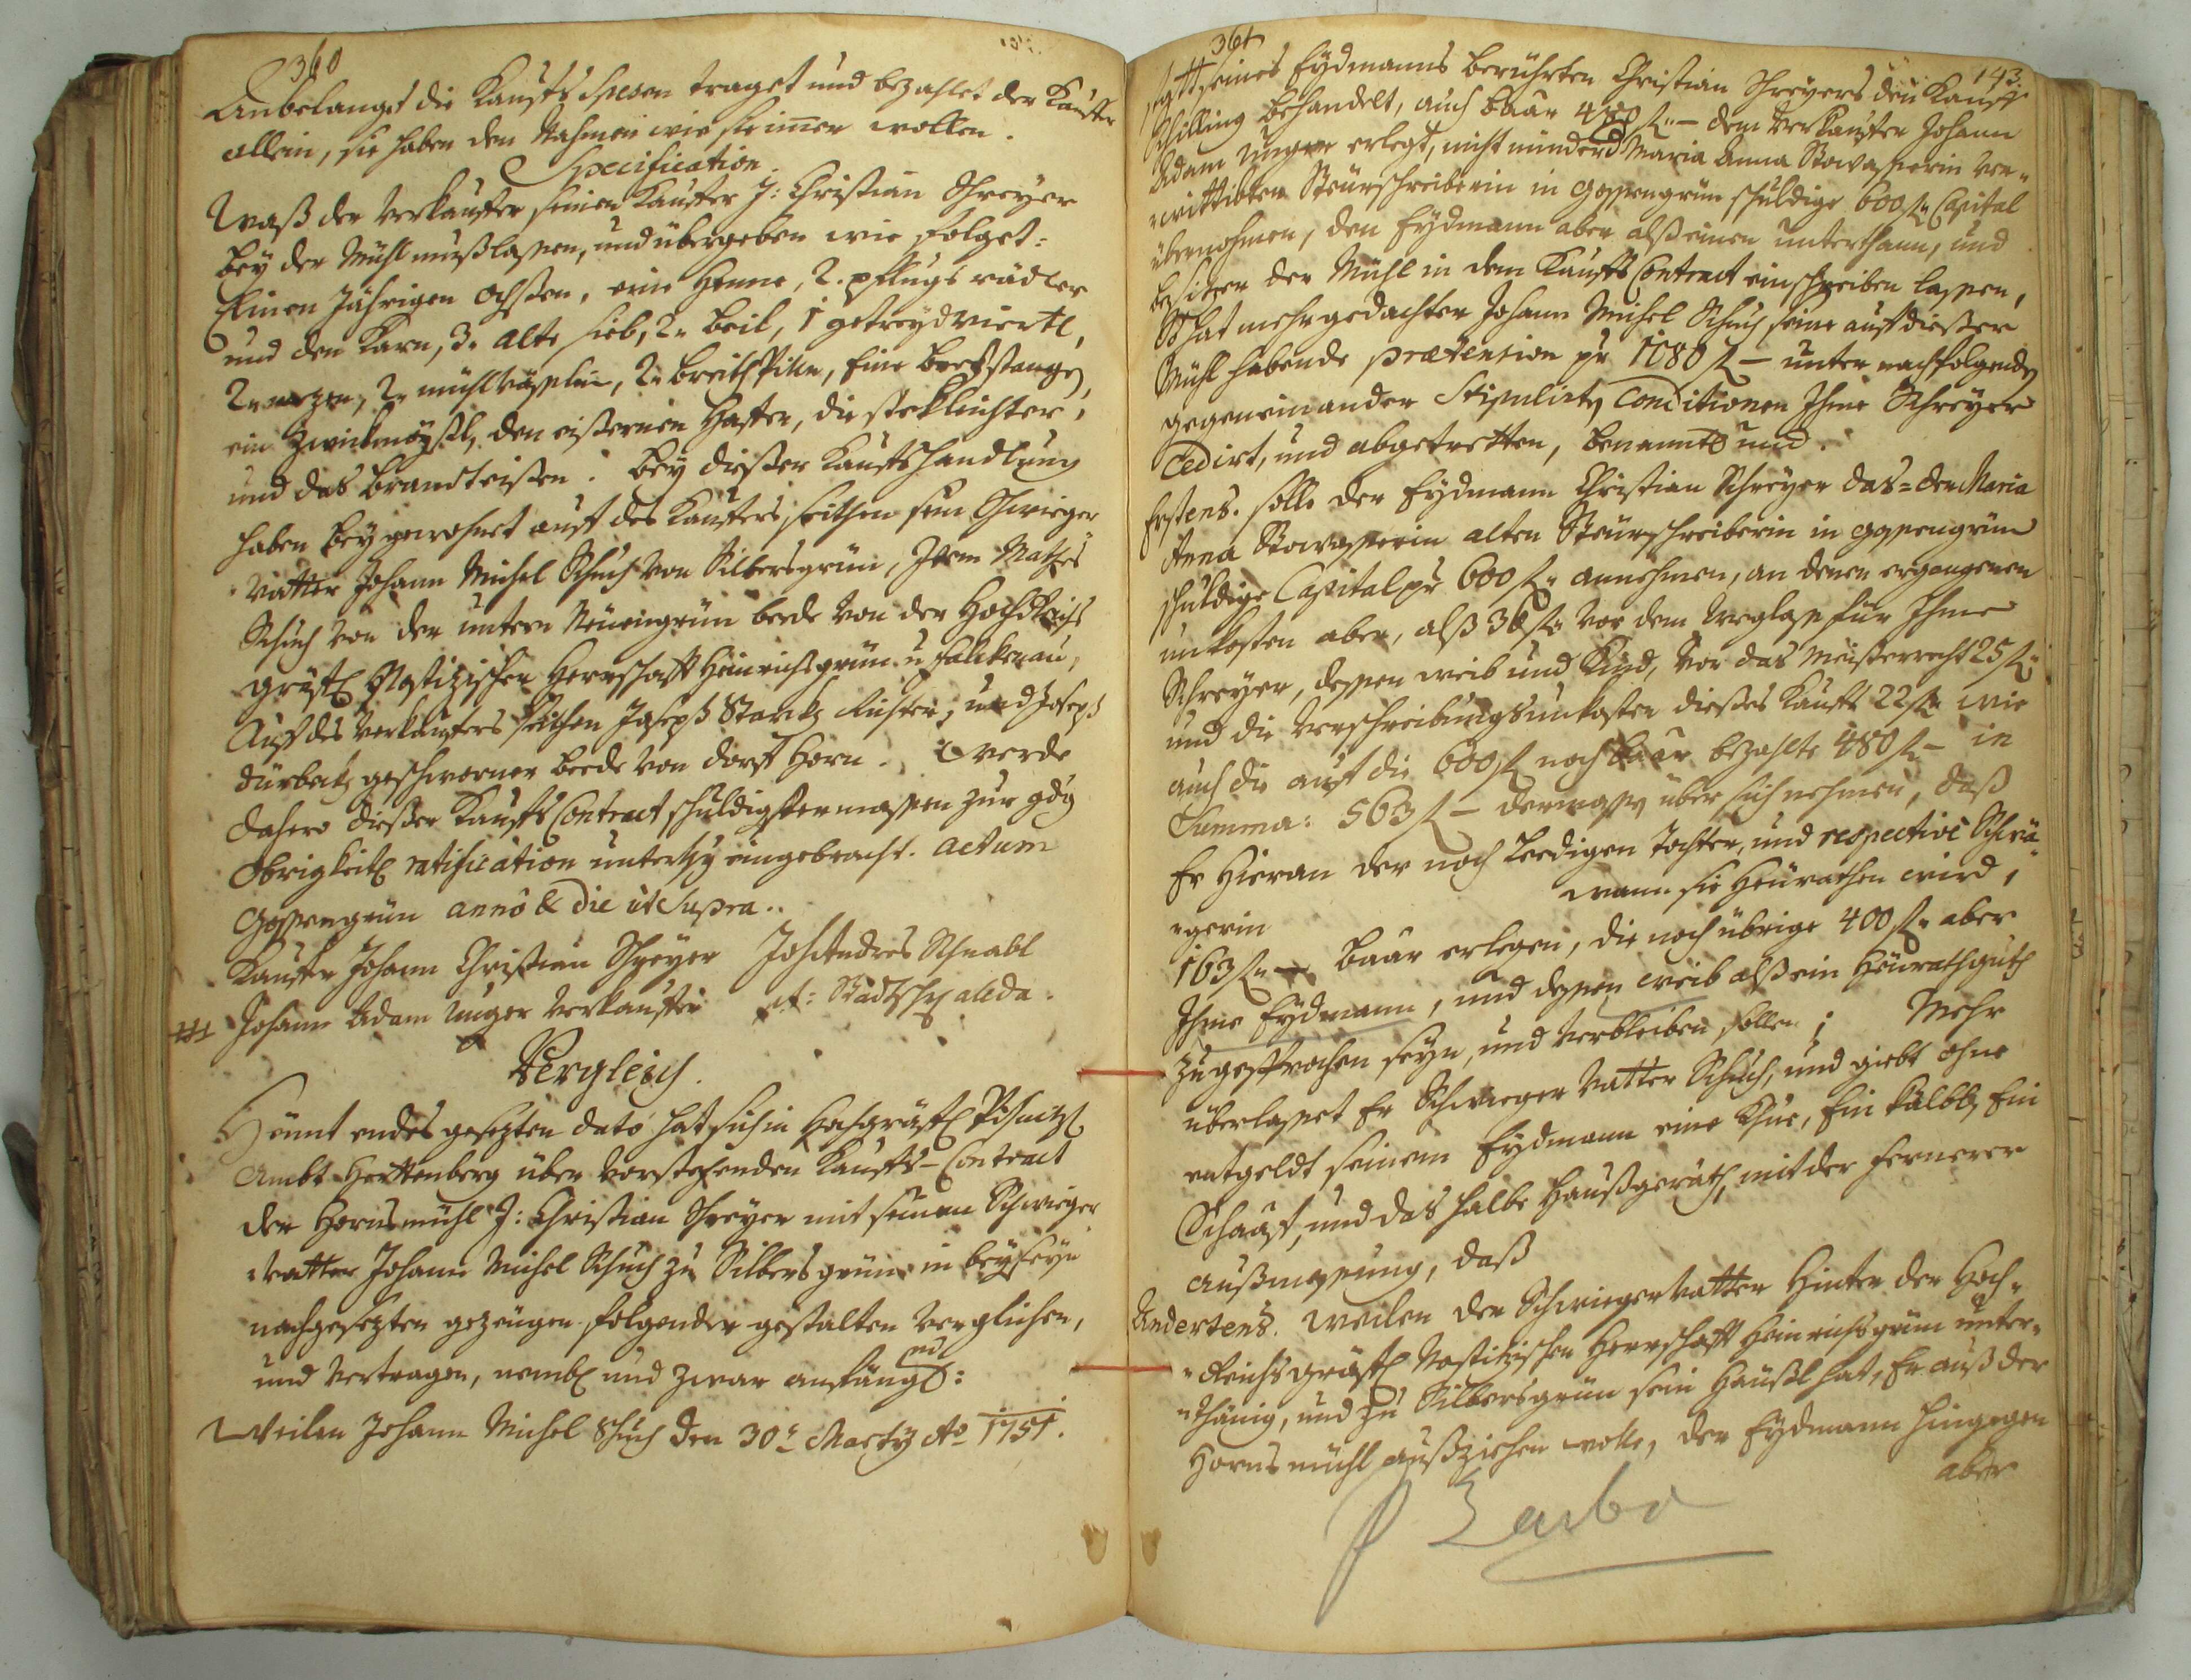 360
Anbelanget die Kauffs Spesen traget und bezahlet der Kauffer
allein, sie haben den Nahmen wie sie immer wollen.
Specification.
Waß der Verkauffer seinen Kauffer J: Christian Schreyer
bey der Mühl muß laßen, und übergeben wie folget:
Einen Jährigen Ochßen, eine Henne, 2. pflugs rädler
und den Karn, 3. alte sieb, 2. beil, 1 getreydviertl,
2. 2. mühl 2. breith Pikn, Eine
ein den eißernen Haffen, die
und das brandteißen. Bey dießer Kauffshandlung
haben beygewohnet auff des Kauffers seithen sein Schwieger
Vatter Johann Michel Schuch von Silbersgrün, Item Mathes
Schuch von der untern Neuengrün beede von der Hochreichs
gräfl Nostizischen Herrschafft Heinrichsgrün u Falckenau,
Auff des Verkauffers seithen Joseph Starckh Richter, und Joseph
dürbeckh geschworner beede von dorff Horn. Werde
dahero dießer Kauffs Contract schuldigster maßen zur gdg
Obrigkeitl ratification unterthg eingebracht. Actum
Goßengrün anno & die ut Supra.
Kauffer Johann Christian Schreyer Joh Andres Schnabl
Johann Adam Unger Verkauffer
Vergleich.
Heunt endes gesezten dato hat sich in Hochgräfl
Ambt Harttenberg über vorstehenden Kauffs-Contract
der Hornsmühl J: Christian Schreyer mit seinen Schwieger
Vatter Johann Michel Schuch zu Silbersgrün in beyseyn
nachgesezten gezeugen folgender gestalten verglichen,
und vertragen, neml und zwar anfängl:
Weilen Johann Michel Schuch den 30t Marty Ao 1751.
361
143.
statt seines Eydmanns berührten Christian Schreyers den Kauff
Schilling behandelt, auch baar 480 f. – dem Verkauffer Johann
Adam Unger erlegt, nicht minder d Maria Anna Stowaßerin ver-
wittibten Steurschreiberin in Goßengrün schuldige 600 f. Capital
übernohmen, den Eydmann aber alß einen unterthann, und
besizer der Mühl in dem Kauffs Contract einschreiben laßen,
So hat mehrgedachter Johann Michel Schuch seine auff dießer
Mühl habende praetension pr 1080 f – unter nachfolgend
gegeneinander Stipulirten Conditionen Ihme Schreyer
cedirt, und abgetretten, benannt und.
Erstens. solle der Eydmann Christian Schreyer das der Maria
Anna Stowaßerin alten Steurschreiberin in Goßengrün
schuldige Capital pr 600 f. annehmen, an denen ergangenen
unkosten aber, alß 36 f. vor dem Weglaß für Ihme
Schreyer, deßen weib und Kind, vor das Meisterrecht 25 f.
und die verschreibungsunkosten dießes Kauffs 22 f. wie
auch die auff die 600 f noch baar bezahlte 480 f – in
Summa: 563 f – dermaßen über sich nehmen, daß
Er Hieran der noch leedigen Tochter, und respective Schwä-
gerin wann sie Heurathen wird,
163 f. – baar erlegen, die noch übrige 400 f. aber
Ihme Eydmann, und deßen weib alß ein Heurathguth
zugesprochen seyn, und verbleiben sollen; Mehr
überlaßet Er Schwieger Vatter Schuch, und giebt ohne
entgeldt seinem Eydmann eine Khue, Ein Kälbl, Ein
Schaaf, und das halbe Haußgeräth, mit der fernerer
außmeßung, daß
Andertens. weilen der Schwieger Vatter Hinter der Hoch-
Reichsgräfl Nostizischen Herrschafft Heinrichsgrün unter-
thänig, und zu Silbersgrün sein Häußl hat, Er auß der
Hornsmühl außziehen wolle, der Eydmann hingegen
aber